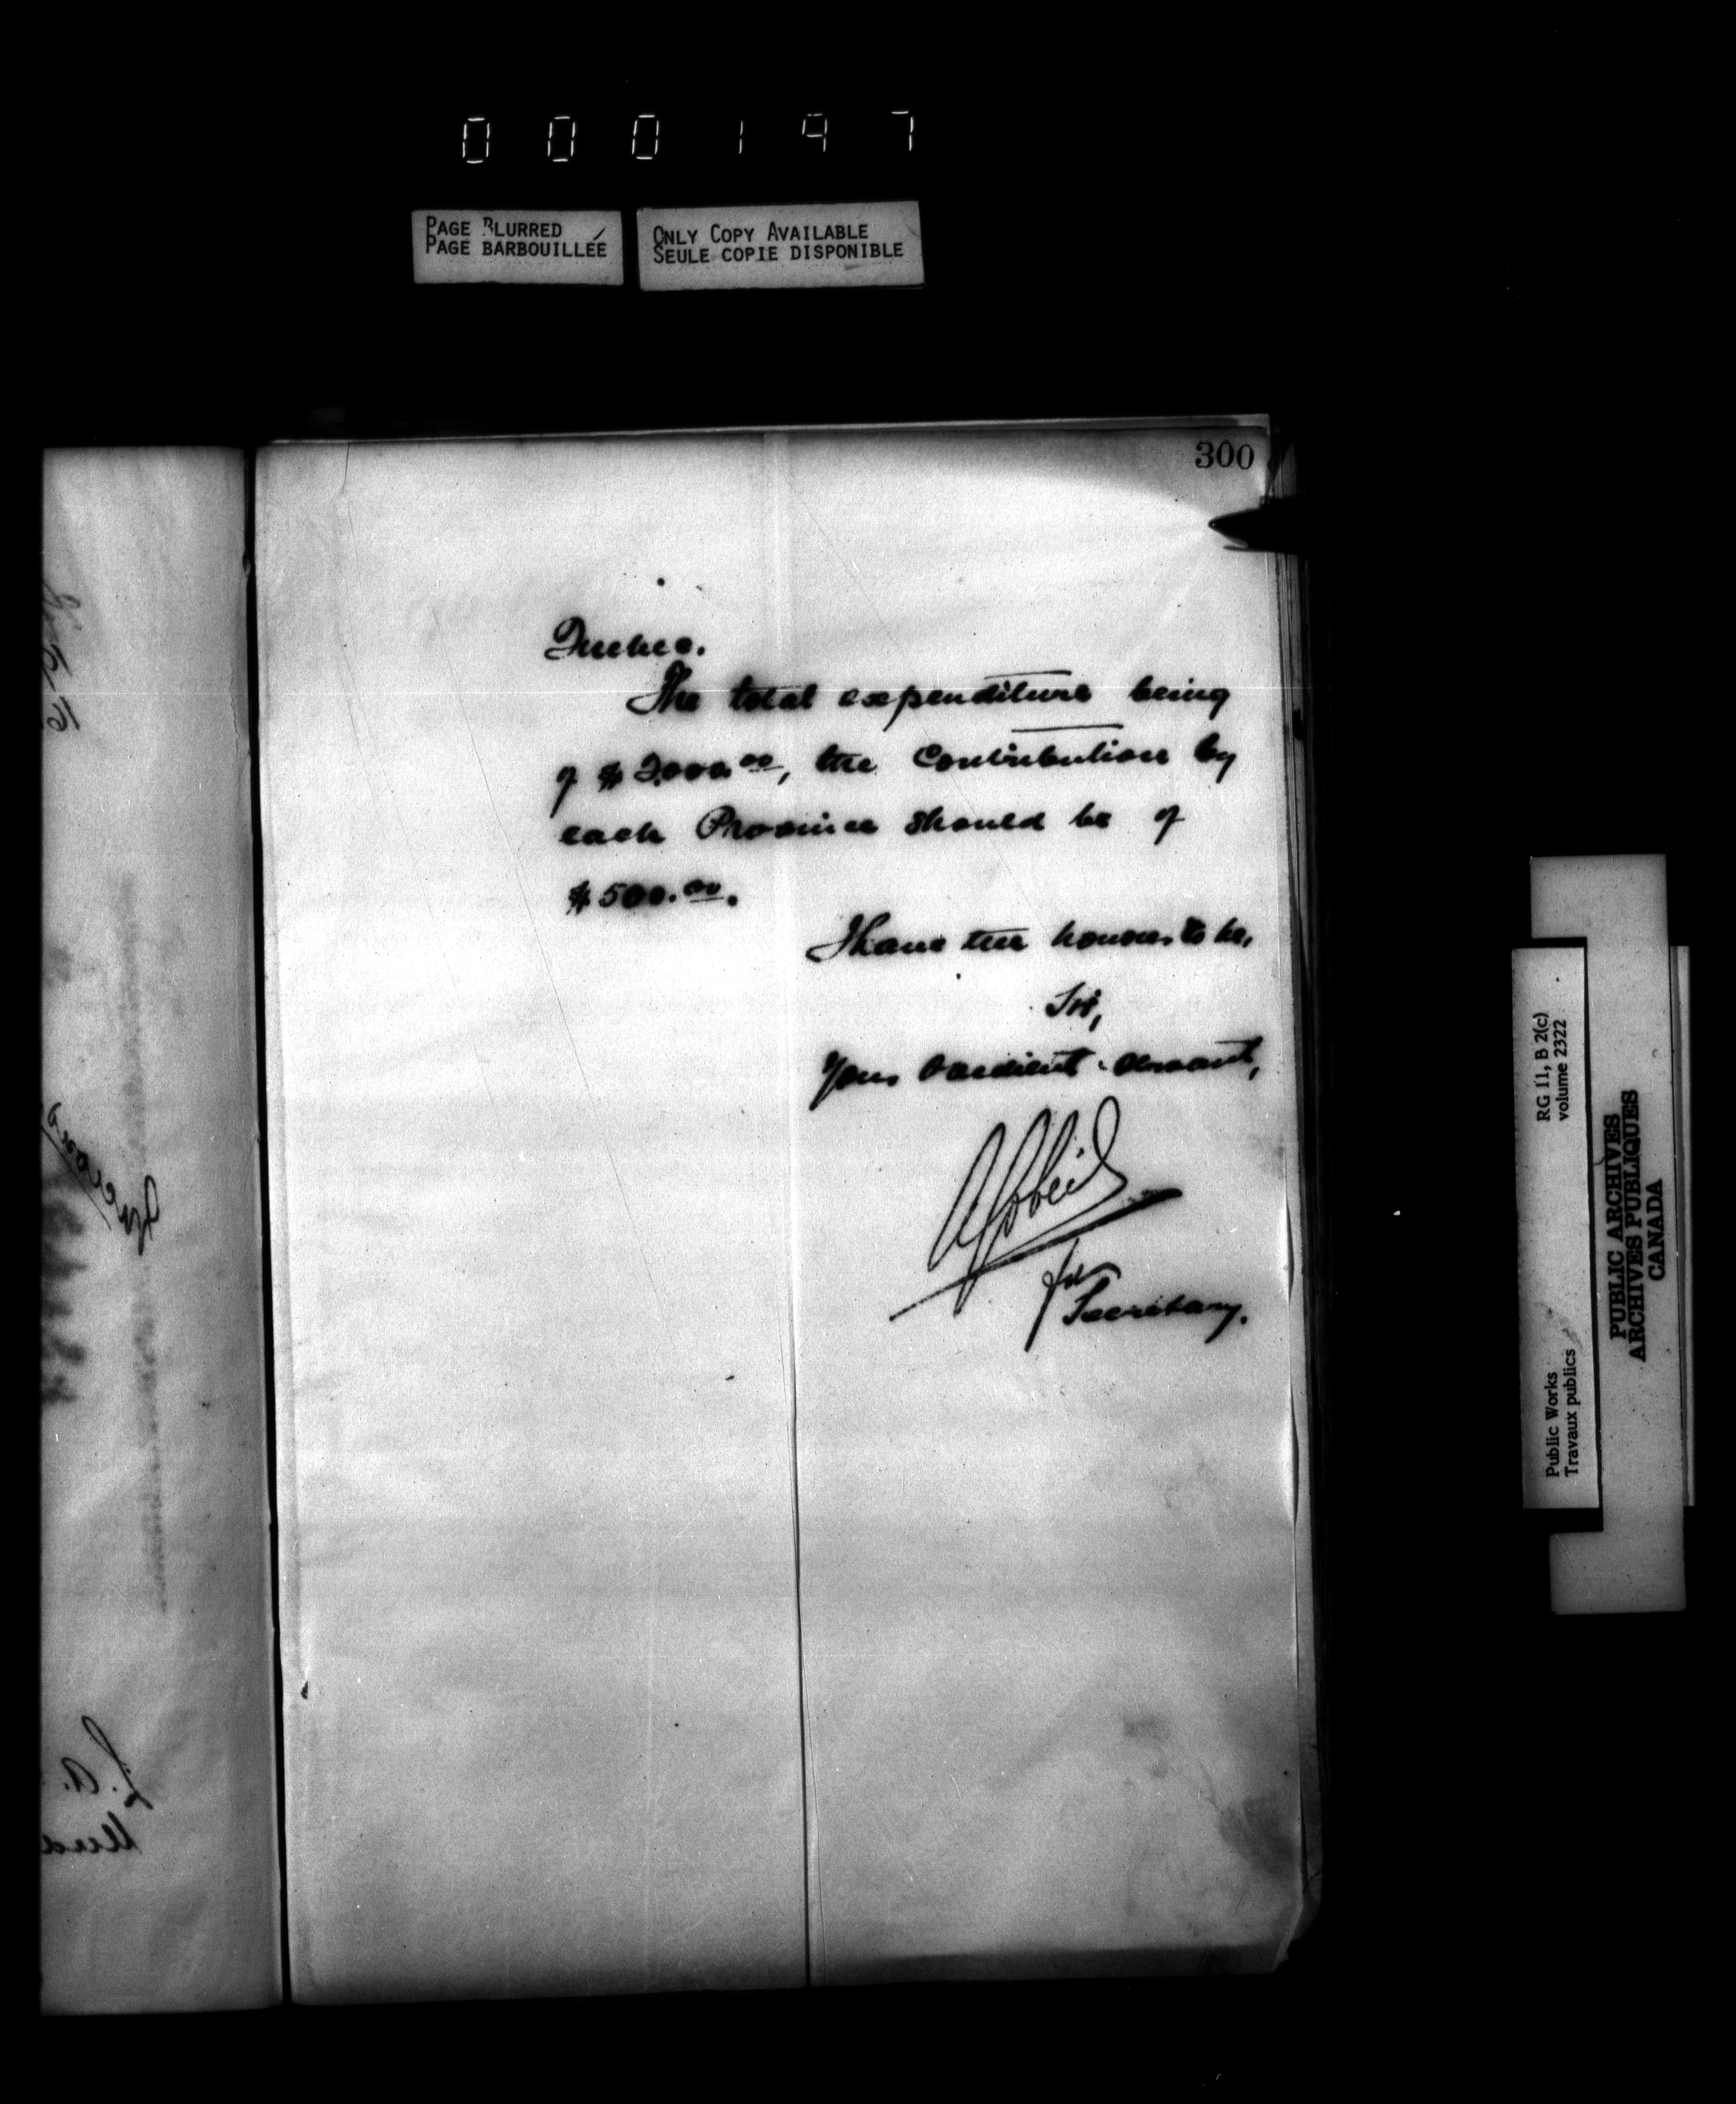 000197
PAGE BLURRED
PAGE BARBOUILLÉE
ONLY COPY AVAILABLE
SEULE COPIE DISPONIBLE
300
Quebec.
The total expenditure being
of $2,000.00, the Contribution by
each Province should be of
$500.00.
I have the honour to be,
Sir,
Your obedient servant,
for
Secretary.
RG 11, B 2(c)
volume 2322
Public Works
Travaux publics
PUBLIC ARCHIVES
ARCHIVES PUBLIQUES
CANADA